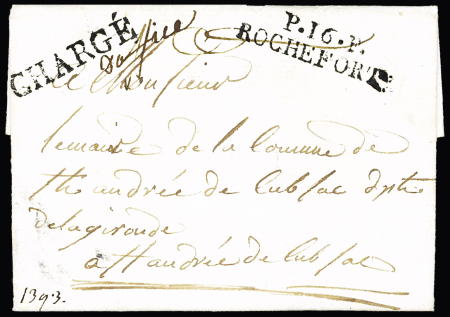 CHARGÉ
D'office
P.16.P.
ROCHEFORT
A Monsieur
le maire de la Comune de
St andrée de Cubsac dpte
de la gironde
a St andrée de Cubsac
1393.